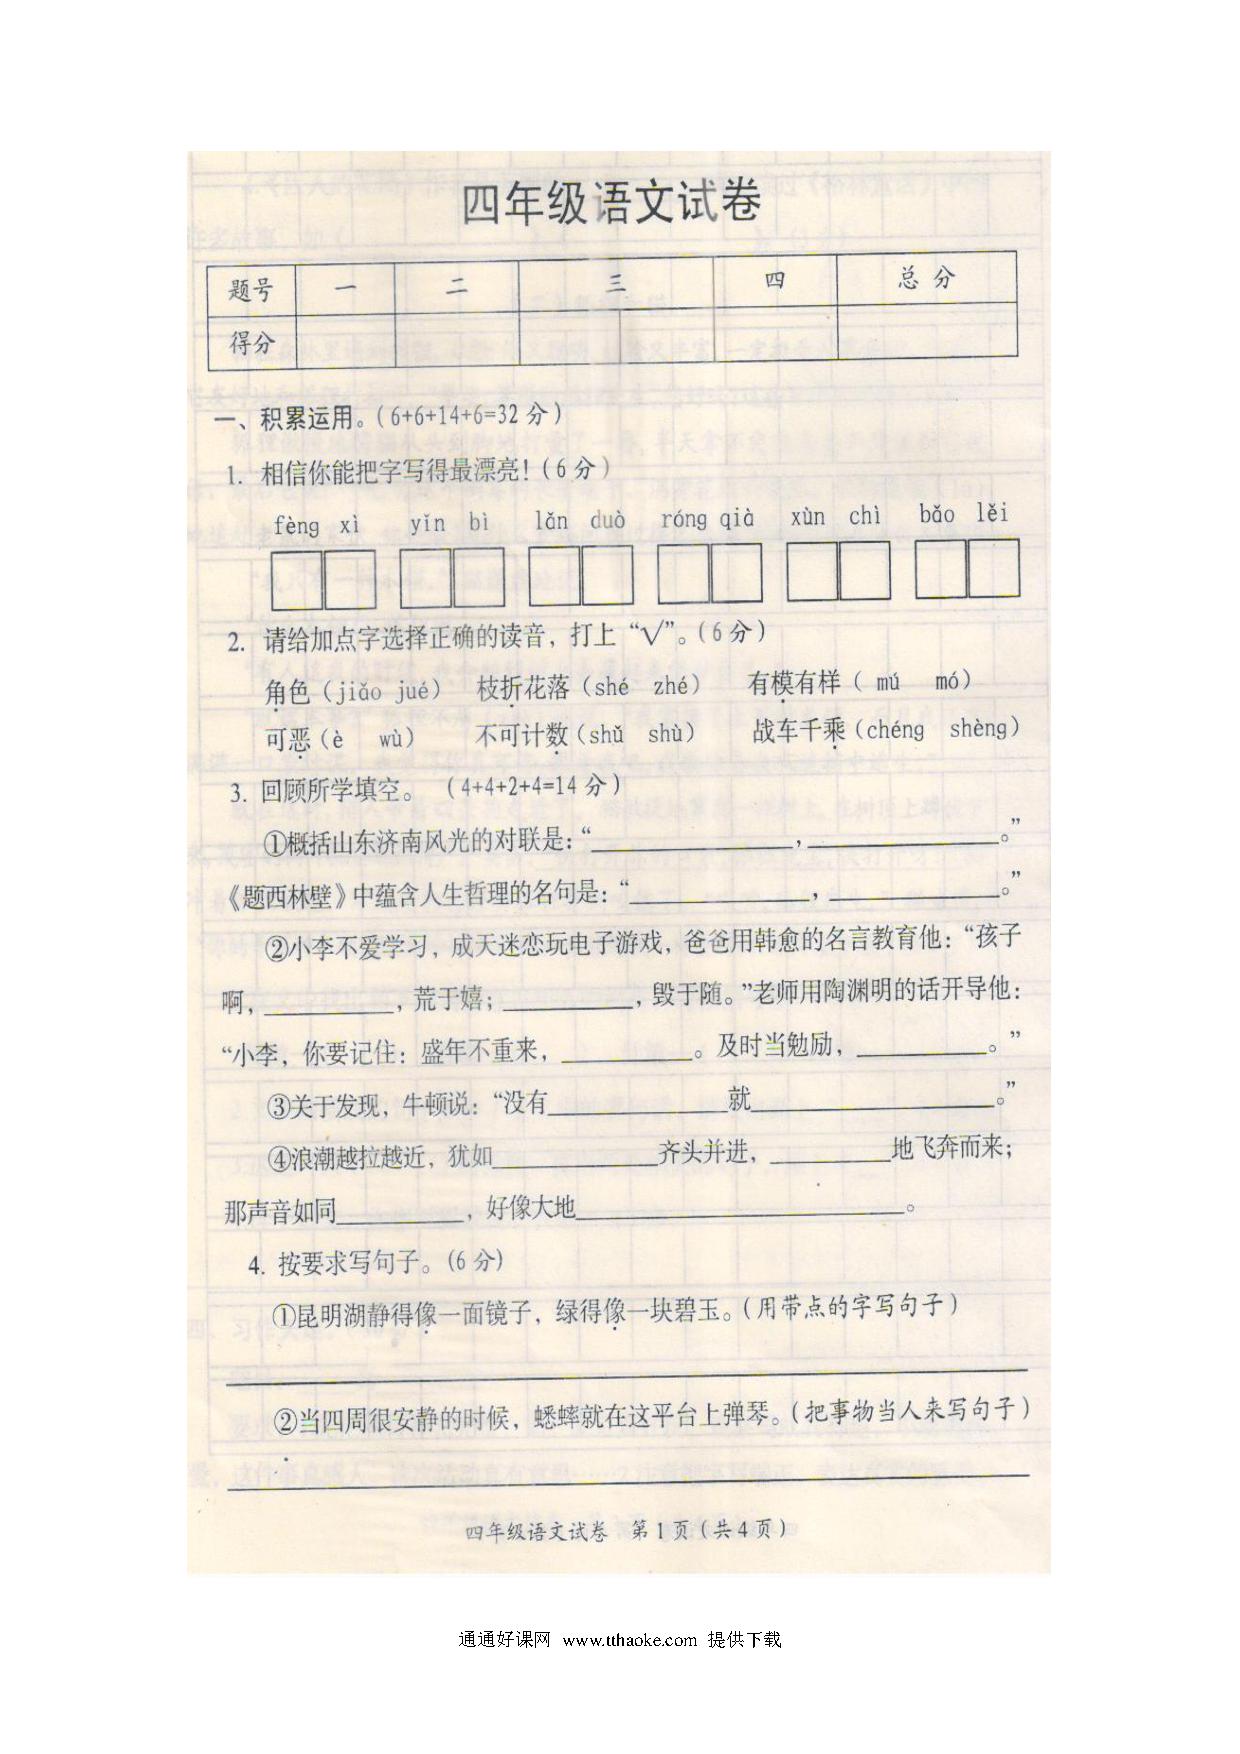 四年级语文试卷
题号 一 二 三 四 总分
得分
一、积累运用。(6+6+14+6=32分)
1. 相信你能把字写得最漂亮!(6分)
fèng xì yǐn bì lǎn duò róng qià xùn chì bǎo lěi
2. 请给加点字选择正确的读音，打上“√”。(6分)
角色(jiǎo jué) 枝折花落(shé zhé) 有模有样( mú mó)
可恶(è wù) 不可计数(shǔ shù) 战车千乘(chéng shèng)
3. 回顾所学填空。 (4+4+2+4=14分)
①概括山东济南风光的对联是:“________，________。”
《题西林壁》中蕴含人生哲理的名句是:“________，________。”
②小李不爱学习，成天迷恋玩电子游戏，爸爸用韩愈的名言教育他:“孩子
啊，________，荒于嬉；________，毁于随。”老师用陶渊明的话开导他:
“小李，你要记住:盛年不重来，________。及时当勉励，________。”
③关于发现，牛顿说:“没有________就________。”
④浪潮越拉越近，犹如________齐头并进，________地飞奔而来；
那声音如同________，好像大地________。
4. 按要求写句子。(6分)
①昆明湖静得像一面镜子，绿得像一块碧玉。(用带点的字写句子)
②当四周很安静的时候，蟋蟀就在这平台上弹琴。(把事物当人来写句子)
四年级语文试卷 第1页(共4页)
通通好课网 www.tthaoke.com 提供下载